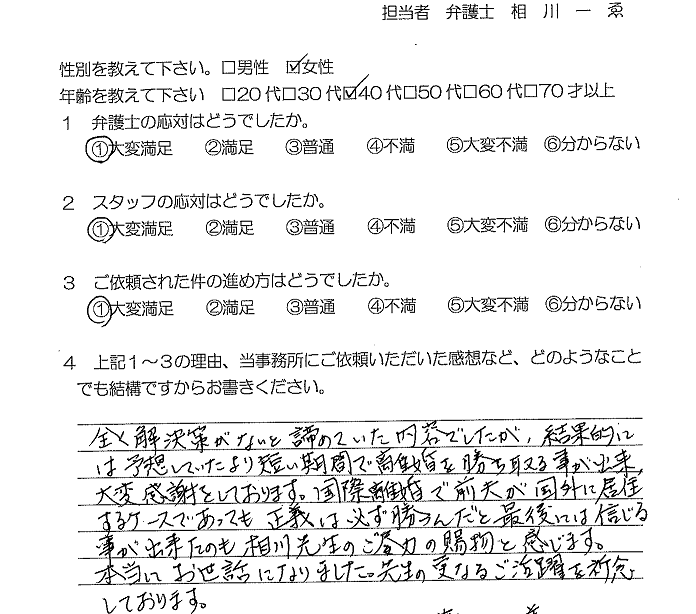 担当者 弁護士 相 川 一 ゑ
性別を教えて下さい。□男性 ☑女性
年齢を教えて下さい □20代□30代☑40代□50代□60代□70才以上
1 弁護士の応対はどうでしたか。
①大変満足 ②満足 ③普通 ④不満 ⑤大変不満 ⑥分からない
2 スタッフの応対はどうでしたか。
①大変満足 ②満足 ③普通 ④不満 ⑤大変不満 ⑥分からない
3 ご依頼された件の進め方はどうでしたか。
①大変満足 ②満足 ③普通 ④不満 ⑤大変不満 ⑥分からない
4 上記1～3の理由、当事務所にご依頼いただいた感想など、どのようなこと
でも結構ですからお書きください。
全く解決策がないと諦めていた内容でしたが、結果的に
は予想していたより短い期間で離婚を勝ち取る事が出来、
大変感謝をしております。国際離婚で前夫が国外に居住
するケースであっても正義は必ず勝つんだと最後には信じる
事が出来たのも相川先生のご尽力の賜物と感じます。
本当にお世話になりました。先生の更なるご活躍を祈念
しております。